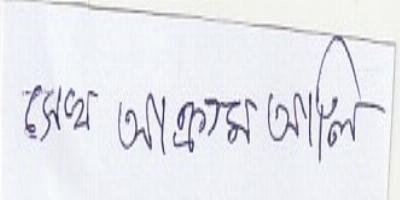 সেখ আক্রাম আলি